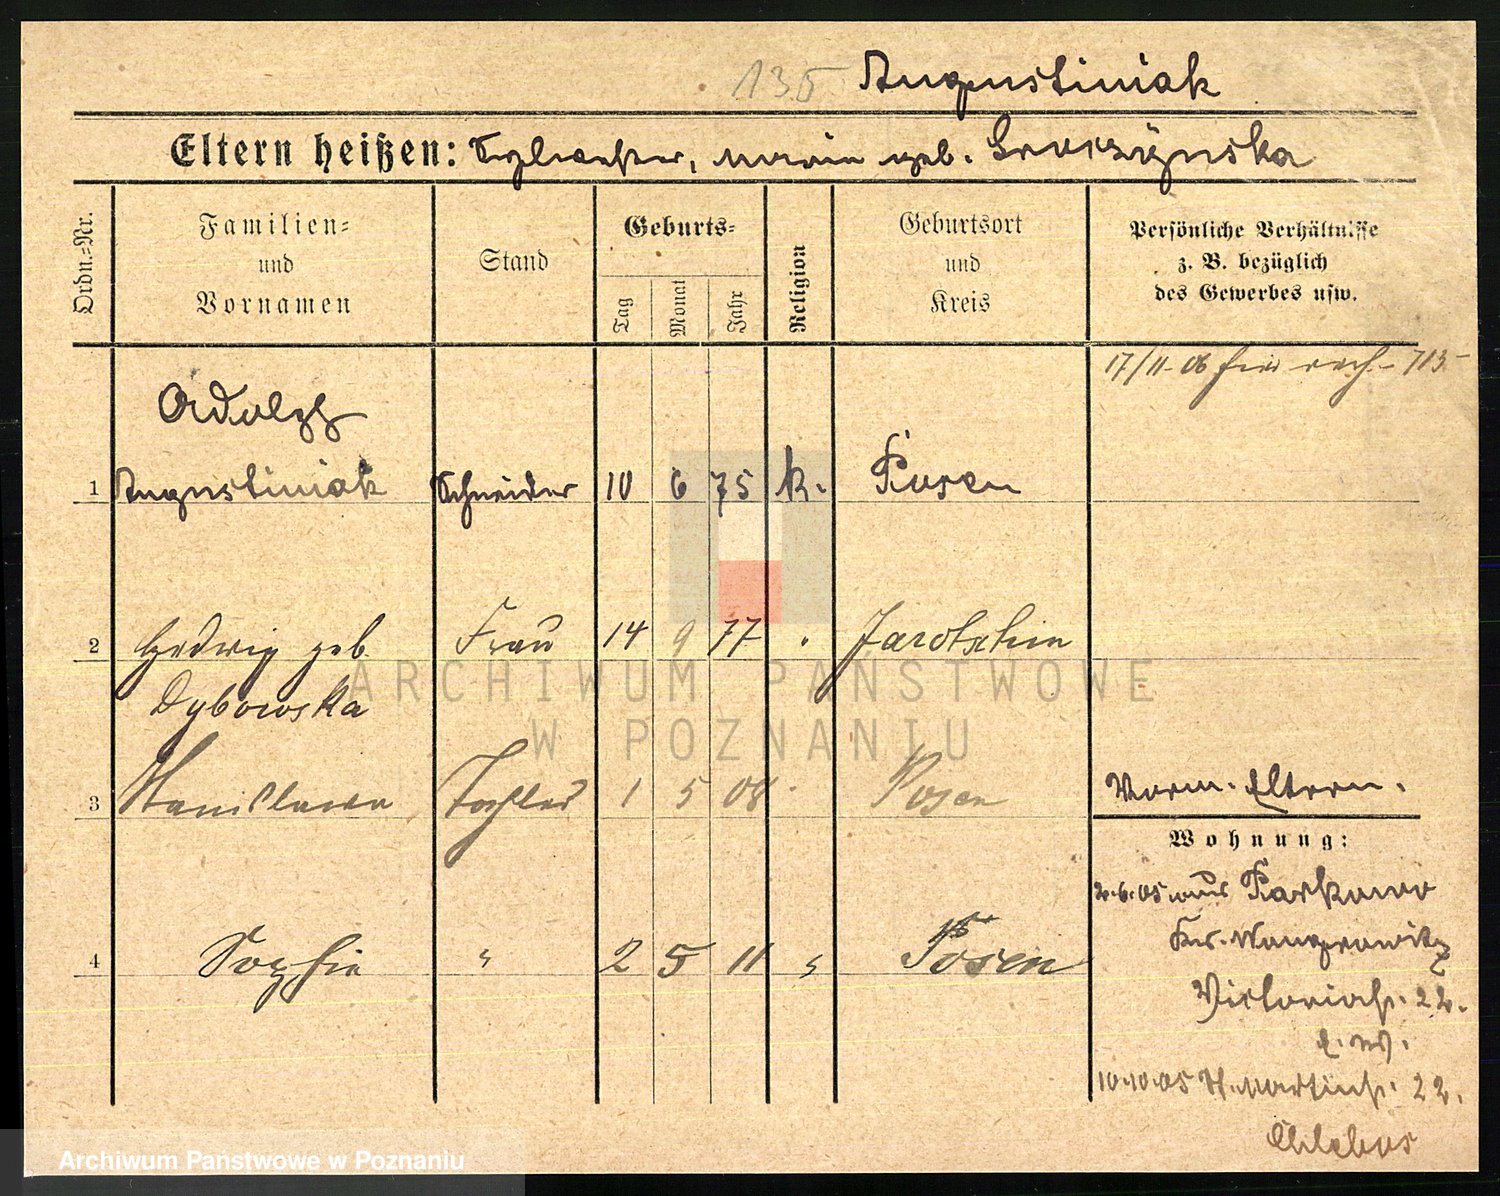 135 Augustiniak
Eltern heißen: Sylvester, Maria geb.
Ordn.=Nr.
Familien=
und
Vornamen
Stand
Geburts=
Tag
Monat
Jahr
Religion
Geburtsort
und
Kreis
Persönliche Verhältnisse
z. B. bezüglich
des Gewerbes usw.
17/11 06 713
Adolph
1 Augustiniak Schneider 10 6 75 k. Posen
2 Hedwig geb. Frau 14 9 77 " Jarotschin
Dybowska
3 Stanislawa Tochter 1 5 08 " Posen
Vorm. Eltern.
Wohnung:
2.6.05 aus Parkowo
Kr. Wongrowitz
4 Sophie " 2 5 11 " Posen
Victoriastr. 22.
10.10.05 St. Martinstr. 22.
ARCHIWUM PAŃSTWOWE
W POZNANIU
Archiwum Państwowe w Poznaniu